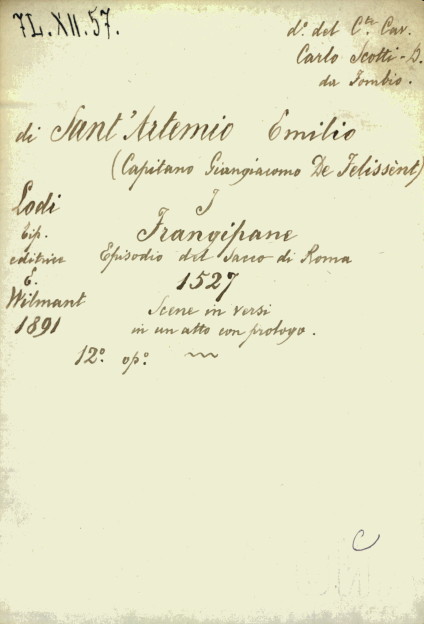 7L.XII.57.
d.º del C.te Cav.
Carlo Scotti-D.
da Fombio.
di Sant'Artemio Emilio
(Capitano Giangiacomo De Felissènt)
Lodi
I
Tip.
Frangipane
editrice
Episodio del Sacco di Roma
E.
1527
Wilmant
Scene in versi
1891
in un atto con prologo.
12º. opº.
C